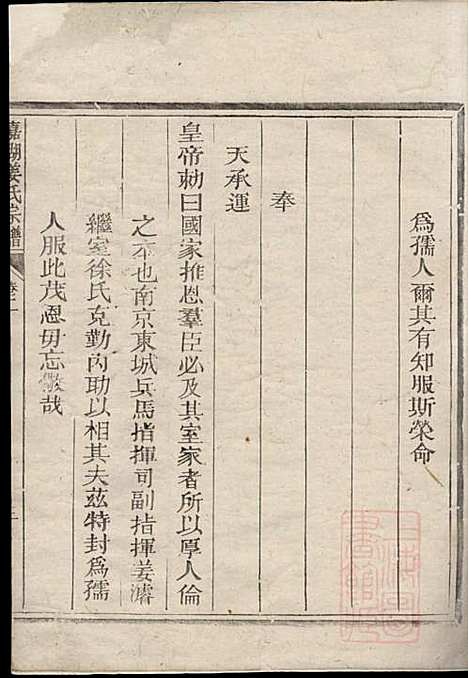 為孺人爾其有知服斯榮命
奉
天承運
皇帝勅曰國家推恩羣臣必及其室家者所以厚人倫
之本也南京東城兵馬指揮司副指揮姜濬
繼室徐氏克勤內助以相其夫茲特封為孺
人服此茂恩毋忘儆哉
姜氏宗譜